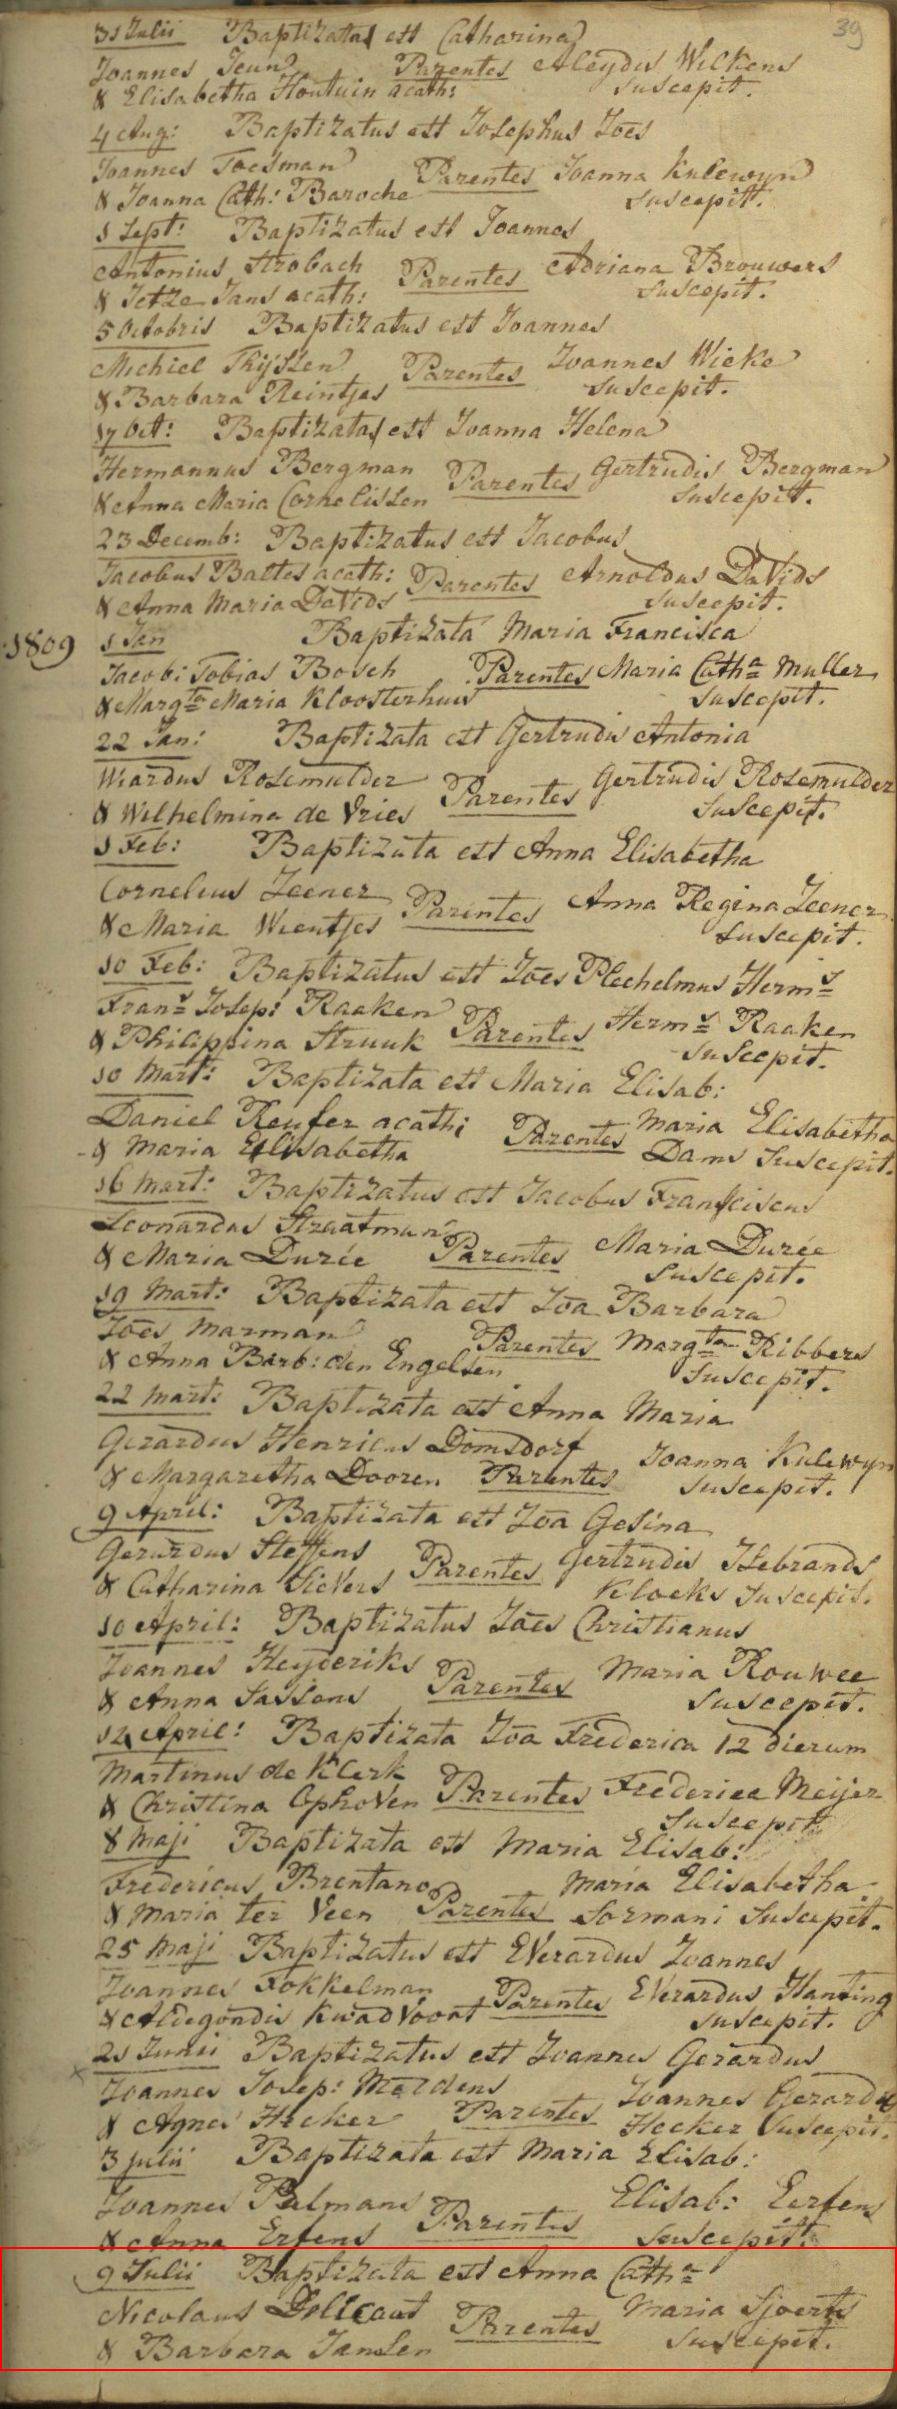 39
31 Julii Baptizata est Catharina
Joannes Jeun Parentes Aleydis Wilkens
& Elisabetha Houtuin acath: suscepit.
4 Aug: Baptizatus est Josephus Joës
Joannes Toesman Parentes Joanna Kulewyn
& Joanna Cath: Baroche suscepit.
1 Sept: Baptizatus est Joannes
Antonius Strobach Parentes Adriana Brouwers
& Jetze Jans acath: suscepit.
5 Octobris Baptizatus est Joannes
Michiel Thijssen Parentes Joannes Wieke
& Barbara Reintjes suscepit.
17 Oct: Baptizata est Joanna Helena
Hermannus Bergman Parentes Gertrudis Bergman
& Anna Maria Cornelissen suscepit.
23 Decemb: Baptizatus est Jacobus
Jacobus Baltes acath: Parentes Arnoldus Davids
& Anna Maria Davids suscepit.
1809 1 Jan Baptizata Maria Francisca
Jacob: Tobias Bosch Parentes Maria Catha Muller
& Margta Maria Kloosterhuis suscepit.
22 Jan: Baptizata est Gertrudis Antonia
Wiardus Rosemulder Parentes Gertrudis Rosemulder
& Wilhelmina de Vries suscepit.
1 Feb: Baptizata est Anna Elisabetha
Cornelius Leener Parentes Anna Regina Leener
& Maria Wientjes suscepit.
10 Feb: Baptizatus est Joës Plechelmus Herms
Frans Josep: Raaken Parentes Herms Raaken
& Philippina Struuk suscepit.
10 Mart: Baptizata est Maria Elisab:
Daniel Keufer acath: Parentes Maria Elisabetha
& Maria Elisabetha Dams suscepit.
16 Mart: Baptizatus est Jacobus Franciscus
Leonardus Straatman Parentes Maria Durée
& Maria Durée suscepit.
19 Mart: Baptizata est Joa Barbara
Joës Marman Parentes Margta Ribbers
& Anna Barb: den Engelsen suscepit.
22 Mart: Baptizata est Anna Maria
Gerardus Henricus Domsdorf Joanna Kulewyn
& Margaretha Dooren Parentes suscepit.
9 April: Baptizata est Joa Gesina
Gerardus Steffens Parentes Gertrudis Ilebrands
& Catharina Sievers Klocks suscepit.
10 April: Baptizatus Joës Christianus
Joannes Heyderiks Parentes Maria Rouwee
& Anna Sassens suscepit.
12 April: Baptizata Joa Frederica 12 dierum
Martinus de Klerk Parentes Frederica Meijer
& Christina Ophoven suscepit
8 Maji Baptizata est Maria Elisab:
Fredericus Brentano Parentes Maria Elisabetha
& Maria ter Veen Sormani suscepit.
25 Maji Baptizatus est Everardus Joannes
Joannes Fokkelman Parentes Everardus Hanting
& Aldegondis Kwadvoort suscepit.
21 Junii Baptizatus est Joannes Gerardus
Joannes Josep: Meldens Parentes Joannes Gerardus
& Agnes Hecker Hecker suscepit.
3 Julii Baptizata est Maria Elisab:
Joannes Palmans Parentes Elisab: Eerfens
& Anna Erfens suscepit.
9 Julii Baptizata est Anna Catha
Nicolaus Dellcaut Parentes Maria Sjoerts
& Barbara Jansen suscepit.